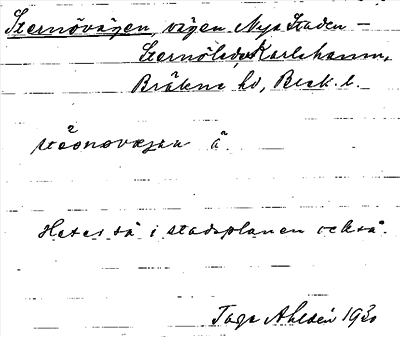 Sternövägen, vägen Nya Staden –
Sternöleden, Karlshamn,
Bräkne hd, Blek. l.
stä̀onovägan ä.
Hetes så i stadsplanen också.
Tage Ahlsén 1930